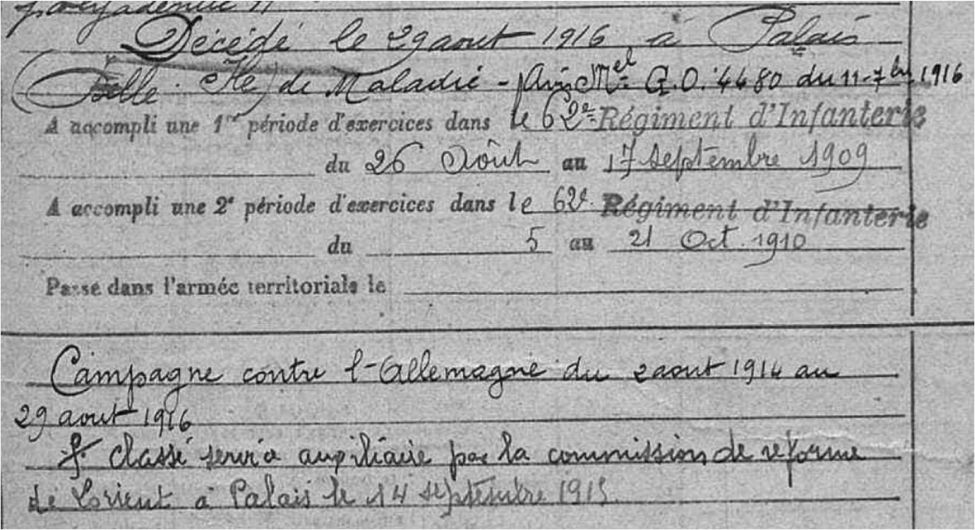 Décédé le 29 aout 1916 à Palais
(Belle-Ile) de Maladie - Avis Mel G.O. 4480 du 11-7bre 1916
A accompli une 1re période d'exercices dans le 62e Régiment d'Infanterie
du 26 Août au 17 septembre 1909
A accompli une 2e période d'exercices dans le 62e Régiment d'Infanterie
du 5 au 21 Oct. 1910
Passé dans l'armée territoriale le
Campagne contre l'Allemagne du 2 aout 1914 au
29 aout 1916
classé servce auxiliaire par la commission de reforme
de Lorient à Palais le 14 septembre 1915